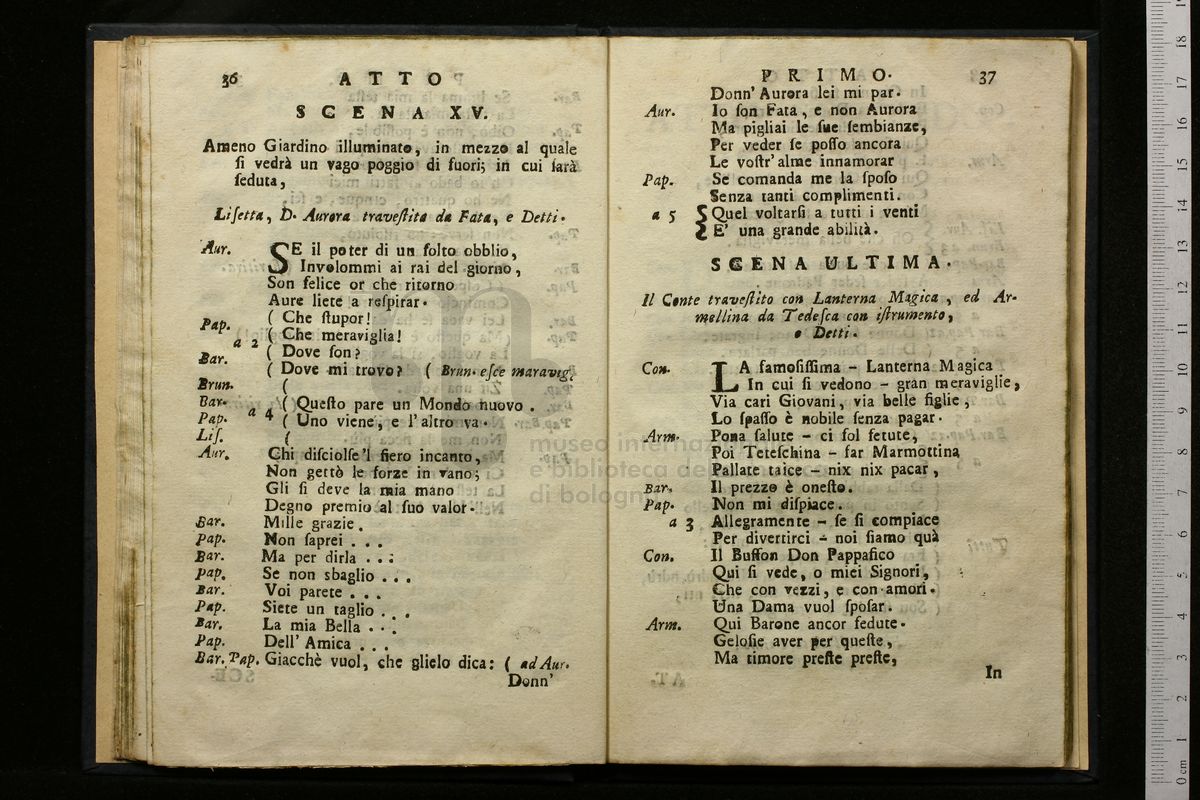 36 ATTO
SCENA XV.
Ameno Giardino illuminato, in mezzo al quale
ſi vedrà un vago poggio di fuori; in cui ſarà
ſeduta,
Liſetta, D. Aurora traveſtita da Fata, e Detti.
Aur. SE il poter di un folto obblio,
Involommi ai rai del giorno,
Son felice or che ritorno
Aure liete a reſpirar.
Pap. ( Che ſtupor!
a 2 ( Che meraviglia!
Bar. ( Dove ſon?
( Dove mi trovo? ( Brun. eſce maravig.
Brun. (
Bar. ( Queſto pare un Mondo nuovo.
Pap. a 4 ( Uno viene, e l'altro va.
Liſ. (
Aur. Chi diſciolſe 'l fiero incanto,
Non gettò le forze in vano;
Gli ſi deve la mia mano
Degno premio al ſuo valor.
Bar. Mille grazie.
Pap. Non ſaprei . . .
Bar. Ma per dirla . . .
Pap. Se non sbaglio . . .
Bar. Voi parete . . .
Pap. Siete un taglio . . .
Bar. La mia Bella . . .
Pap. Dell' Amica . . .
Bar. Pap. Giacchè vuol, che glielo dica: ( ad Aur.
Donn'
PRIMO. 37
Donn' Aurora lei mi par.
Aur. Io ſon Fata, e non Aurora
Ma pigliai le ſue ſembianze,
Per veder ſe poſſo ancora
Le voſtr' alme innamorar
Pap. Se comanda me la ſpoſo
Senza tanti complimenti.
a 5 { Quel voltarſi a tutti i venti
{ E' una grande abilità.
SCENA ULTIMA.
Il Conte traveſtito con Lanterna Magica, ed Ar-
mellina da Tedeſca con iſtrumento,
e Detti.
Con. LA famoſiſſima - Lanterna Magica
In cui ſi vedono - gran meraviglie,
Via cari Giovani, via belle figlie,
Lo ſpaſſo è nobile ſenza pagar.
Arm. Pona ſalute - ci ſol fetute,
Poi Teteſchina - far Marmottina
Pallate taice - nix nix pacar,
Bar. Il prezzo è oneſto.
Pap. Non mi diſpiace.
a 3 Allegramente - ſe ſi compiace
Per divertirci - noi ſiamo quà
Con. Il Buffon Don Pappafico
Qui ſi vede, o miei Signori,
Che con vezzi, e con amori.
Una Dama vuol ſpoſar.
Arm. Qui Barone ancor fedute.
Geloſie aver per queſte,
Ma timore preſte preſte,
In
museo internazionale
e biblioteca della musica
di bologna
0 cm 1 2 3 4 5 6 7 8 9 10 11 12 13 14 15 16 17 18